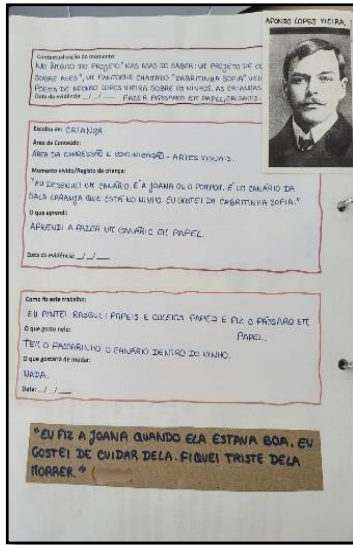 AFONSO LOPES VIEIRA
Contextualização do momento:
NO ÂMBITO DO PROJETO "NAS ASAS DO SABER: UM PROJETO DE
SOBRE AVES", UM FANTOCHE CHAMADO "CABRITINHA SOFIA"
POETA DE AFONSO LOPES VIEIRA SOBRE OS NINHOS. AS CRIANÇAS
Data da evidência: _/_/__ FAZER PÁSSAROS EM PAPEL,
Escolha de: CRIANÇA
Área de Conteúdo:
ÁREA DA EXPRESSÃO E COMUNICAÇÃO - ARTES VISUAIS.
Momento vivido/Registo da criança:
"EU DESENHEI UM CANÁRIO. É A JOANA OU O POMPOM. É UM CANÁRIO DA
SALA LARANJA QUE ESTÁ NO NINHO. EU GOSTEI DA CABRITINHA SOFIA."
O que aprendi:
APRENDI A FAZER UM CANÁRIO EM PAPEL.
Data da evidência: _/_/__
Como fiz este trabalho:
EU PINTEI, RASGUEI PAPEIS E COLEI OS PAPEIS E FIZ O PÁSSARO EM
PAPEL.
O que gosto nele:
TEM O PASSARINHO O CANÁRIO DENTRO DO NINHO.
O que gostaria de mudar:
NADA.
Data: _/_/__
"EU FIZ A JOANA QUANDO ELA ESTAVA BOA. EU
GOSTEI DE CUIDAR DELA. FIQUEI TRISTE DELA
MORRER."